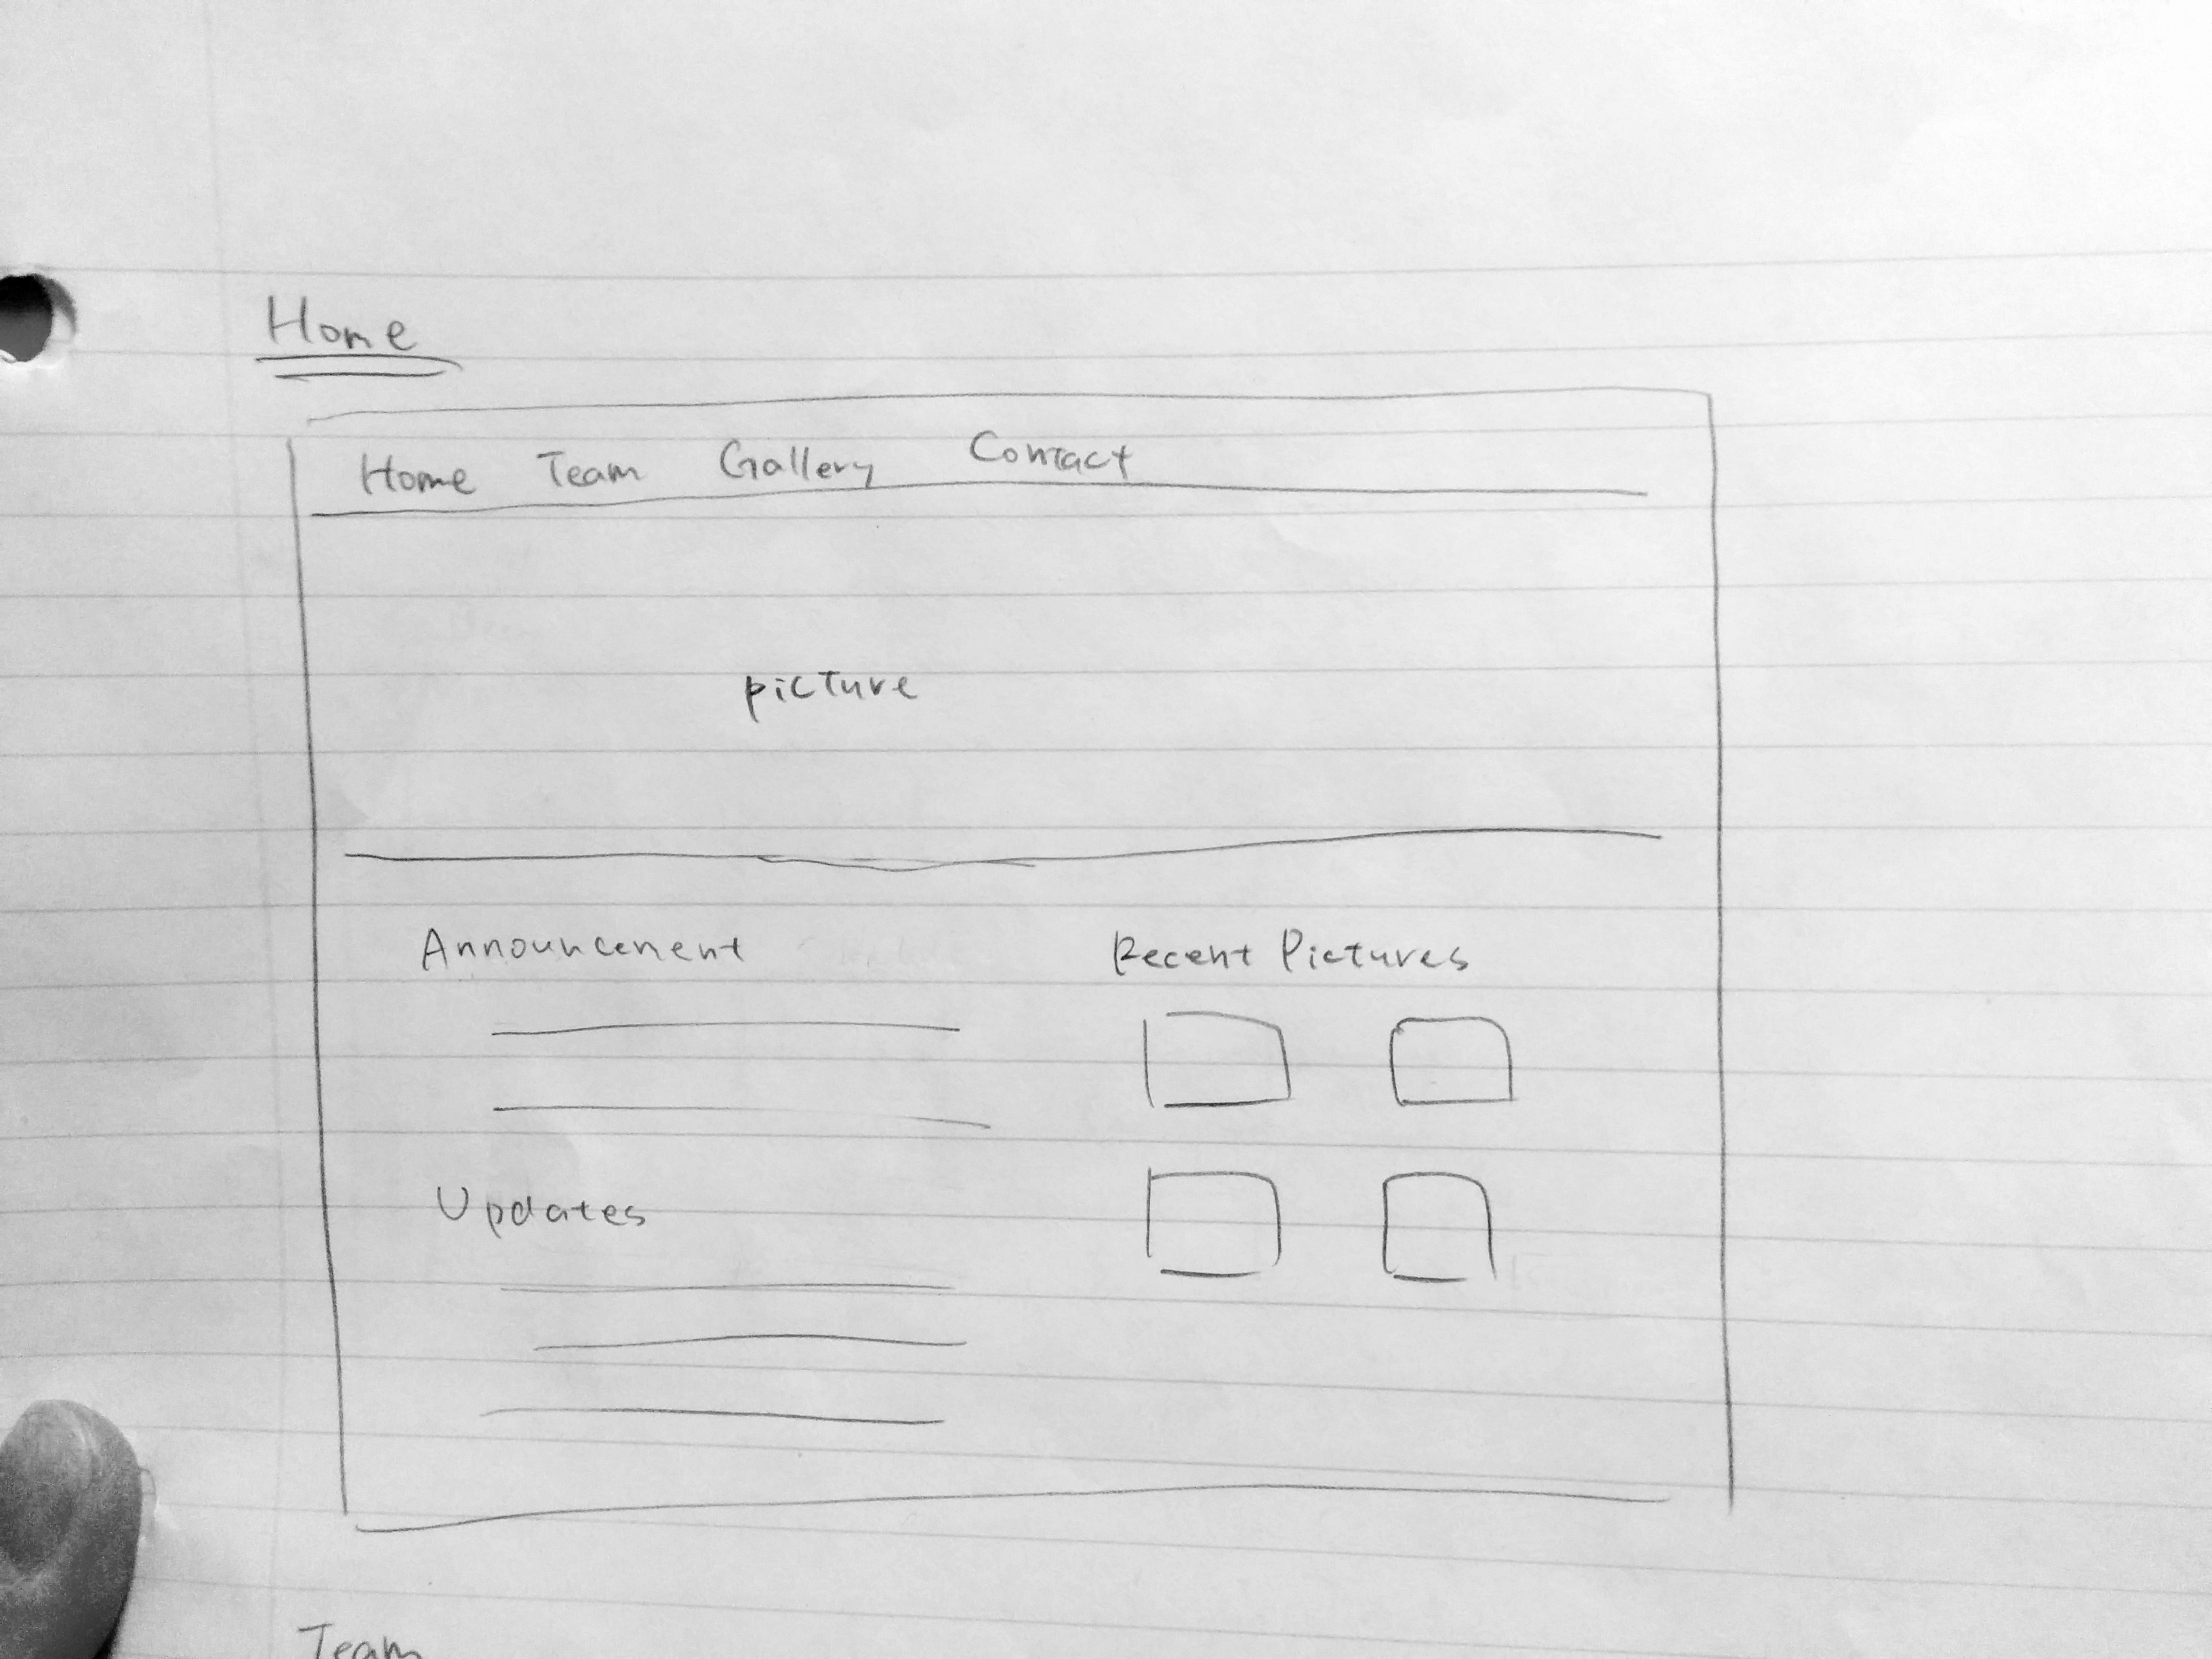 Home
Home Team Gallery Contact
picture
Announcement
Recent Pictures
Updates
Team